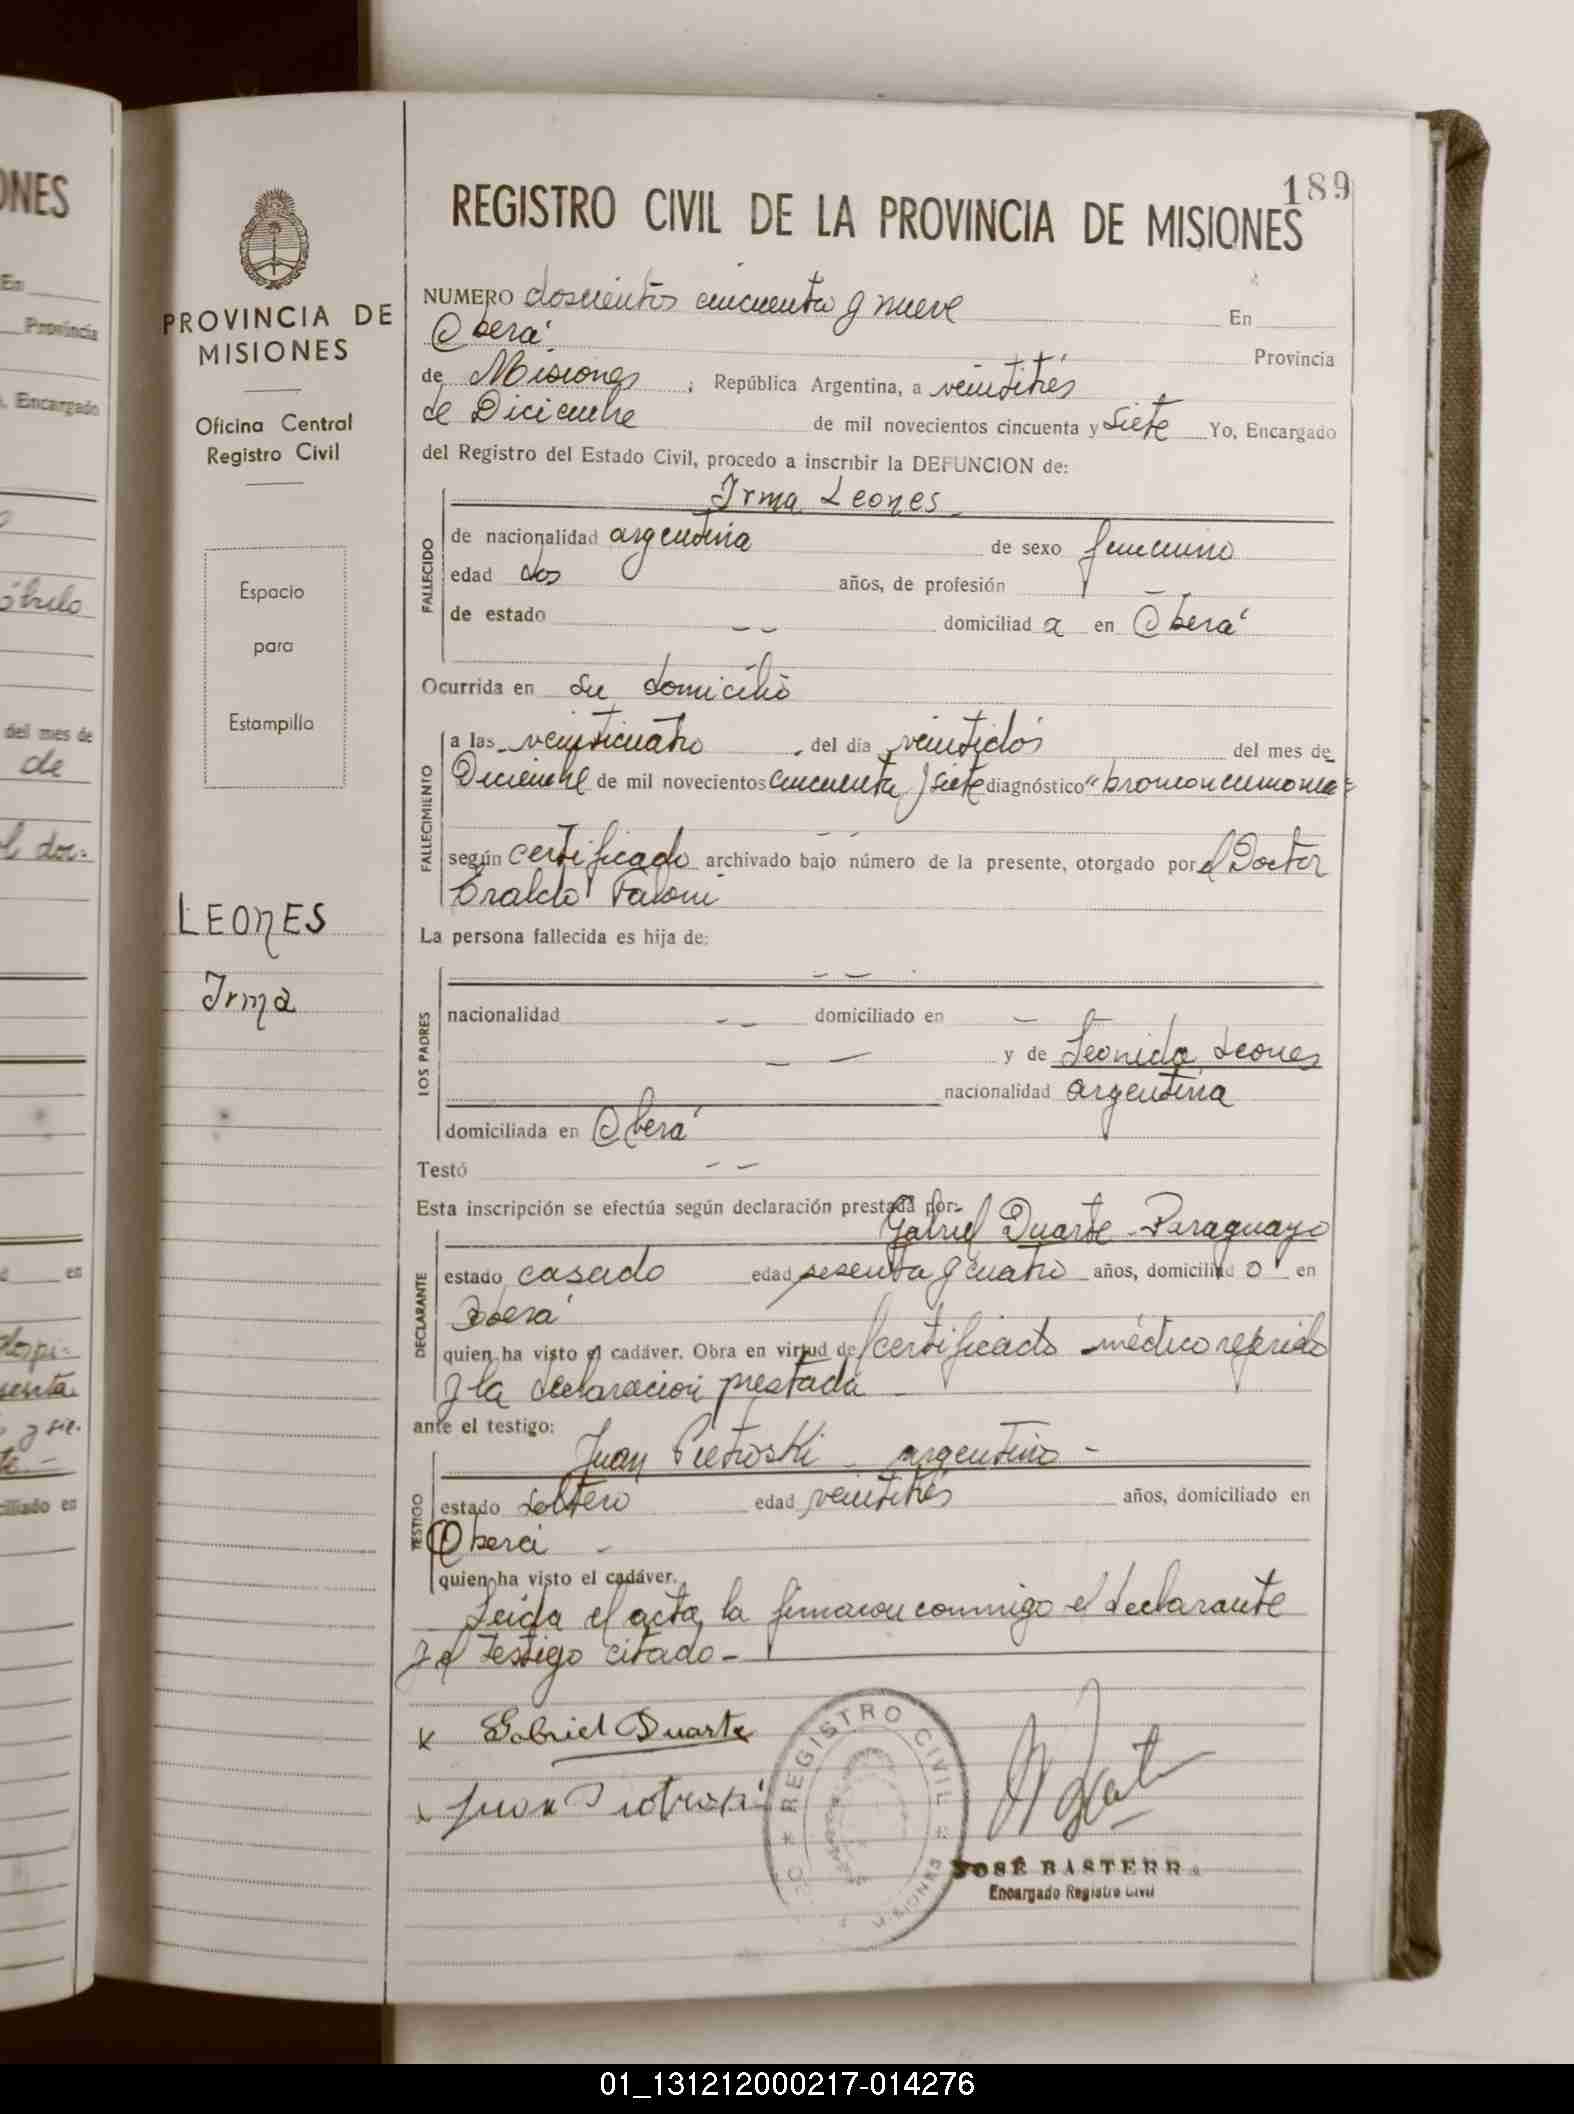 189
REGISTRO CIVIL DE LA PROVINCIA DE MISIONES
PROVINCIA DE
MISIONES
Oficina Central
Registro Civil
Espacio
para
Estampilla
LEONES
Irma
NUMERO doscientos cincuenta y nueve En
Oberá Provincia
de Misiones ; República Argentina, a veintitrés
de Diciembre de mil novecientos cincuenta y siete Yo, Encargado
del Registro del Estado Civil, procedo a inscribir la DEFUNCION de:
Irma Leones
FALLECIDO
de nacionalidad argentina de sexo femenino
edad dos años, de profesión
de estado -- domiciliad a en Oberá
Ocurrida en su domicilio
FALLECIMIENTO
a las veinticuatro del día veintidós del mes de
Diciembre de mil novecientos cincuenta y siete diagnóstico "bronconeumonia"
según certificado archivado bajo número de la presente, otorgado por el Doctor
Eraldo
La persona fallecida es hija de:
LOS PADRES
-- 
nacionalidad -- domiciliado en -
-- y de Leonida Leones
nacionalidad argentina
domiciliada en Oberá
Testó --
Esta inscripción se efectúa según declaración prestada por-
Gabriel Duarte - Paraguayo
DECLARANTE
estado casado edad sesenta y cuatro años, domiciliad o en
Oberá
quien ha visto el cadáver. Obra en virtud del certificado médico referido
y la declaracion prestada -
ante el testigo:
Juan Pietroski - argentino -
TESTIGO
estado soltero edad veintitrés años, domiciliado en
Oberá -
quien ha visto el cadáver.
Leida el acta, la firmaron conmigo el declarante
y el testigo citado -
x Gabriel Duarte
x Juan
REGISTRO CIVIL
MISIONES
JOSÉ BASTERRA
Encargado Registro Civil
ONES
En
Provincia
Encargado
del mes de
de
en
ciliado en
01_131212000217-014276